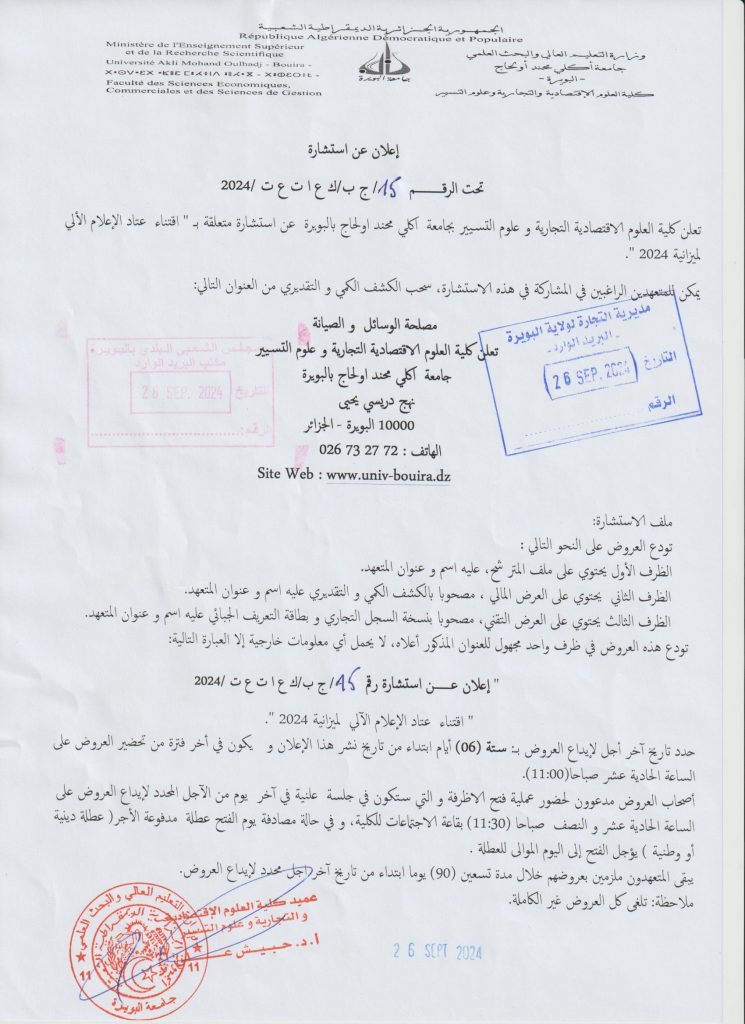 الجمهورية الجزائرية الديمقراطية الشعبية
République Algérienne Démocratique et Populaire
Ministère de l'Enseignement Supérieur
et de la Recherche Scientifique
Université Akli Mohand Oulhadj - Bouira -
Faculté des Sciences Economiques,
Commerciales et des Sciences de Gestion
جامعة البويرة
وزارة التعليم العالي والبحث العلمي
جامعة أكلي محند أولحاج
- البويرة -
كلية العلوم الإقتصادية والتجارية وعلوم التسيير
إعلان عن استشارة
تحت الرقـــــم 15/ ج ب/ك ع ا ت ع ت /2024
تعلن كلية العلوم الاقتصادية التجارية و علوم التسيير بجامعة اكلي محند اولحاج بالبويرة عن استشارة متعلقة بـ " اقتناء عتاد الإعلام الألي
لميزانية 2024 ".
يمكن للمتعهدين الراغبين في المشاركة في هذه الاستشارة، سحب الكشف الكمي و التقديري من العنوان التالي:
مصلحة الوسائل و الصيانة
تعلن كلية العلوم الاقتصادية التجارية و علوم التسيير
جامعة اكلي محند اولحاج بالبويرة
نهج دريسي يحيى
10000 البويرة - الجزائر
الهاتف : 72 27 73 026
Site Web : www.univ-bouira.dz
مديرية التجارة لولاية البويرة
- البريد الوارد -
التاريخ 26 SEP. 2024
الرقم
المجلس الشعبي البلدي بالبويرة
مكتب البريد الوارد
التاريخ 26 SEP. 2024
الرقم:
ملف الاستشارة:
تودع العروض على النحو التالي :
الظرف الأول يحتوي على ملف المترشح، عليه اسم و عنوان المتعهد.
الظرف الثاني يحتوي على العرض المالي ، مصحوبا بالكشف الكمي و التقديري عليه اسم و عنوان المتعهد.
الظرف الثالث يحتوي على العرض التقني، مصحوبا بنسخة السجل التجاري و بطاقة التعريف الجبائي عليه اسم و عنوان المتعهد.
تودع هذه العروض في ظرف واحد مجهول للعنوان المذكور أعلاه، لا يحمل أي معلومات خارجية إلا العبارة التالية:
" إعلان عـــن استشارة رقم 15/ ج ب/ك ع ا ت ع ت /2024
" اقتناء عتاد الإعلام الآلي لميزانية 2024 ".
حدد تاريخ آخر أجل لإيداع العروض بـ: ستة (06) أيام ابتداء من تاريخ نشر هذا الإعلان و يكون في أخر فترة من تحضير العروض على
الساعة الحادية عشر صباحا(11:00).
أصحاب العروض مدعوون لحضور عملية فتح الاظرفة و التي ستكون في جلسة علنية في آخر يوم من الآجل المحدد لإيداع العروض على
الساعة الحادية عشر و النصف صباحا (11:30) بقاعة الاجتماعات للكلية، و في حالة مصادفة يوم الفتح عطلة مدفوعة الأجر( عطلة دينية
أو وطنية ) يؤجل الفتح إلى اليوم الموالى للعطلة .
يبقى المتعهدون ملزمين بعروضهم خلال مدة تسعين (90) يوما ابتداء من تاريخ آخر اجل محدد لإيداع العروض.
ملاحظة: تلغى كل العروض غير الكاملة.
عميد كلية العلوم الإقتصادية
و التجارية و علوم التسيير
أ.د. حبيش
11
جامعة البويرة
11
26 SEPT 2024